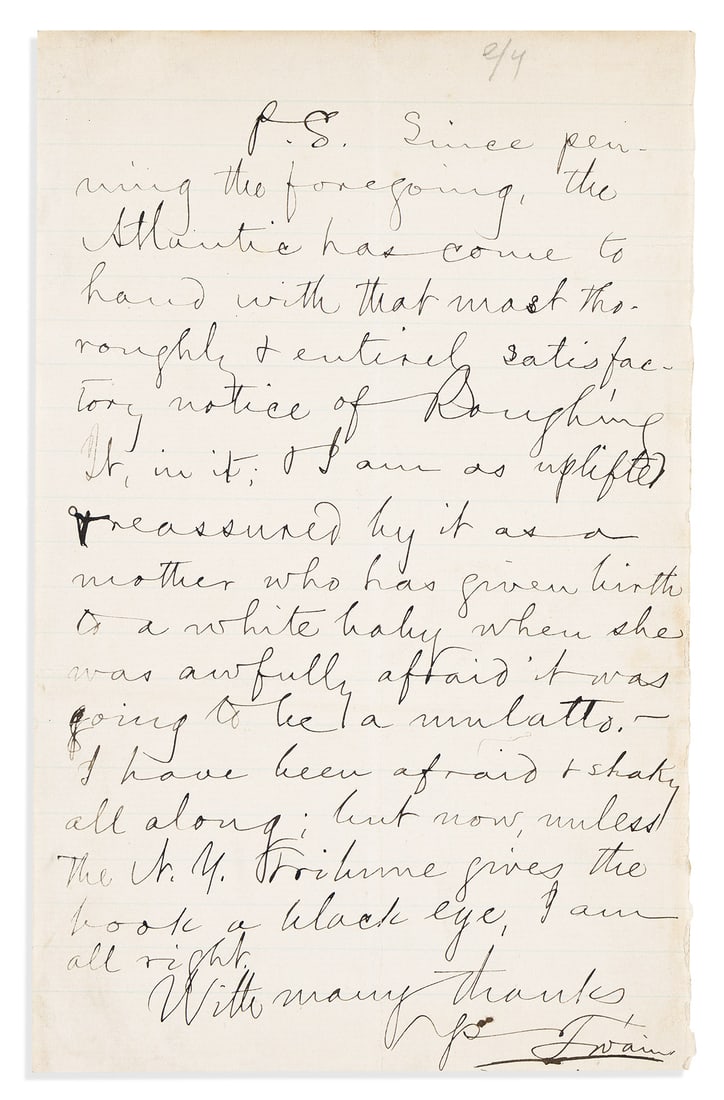 2/4
P.S. Since pen-
ning the foregoing, the
Atlantic has come to
hand with that most tho-
roughly & entirely satisfac-
tory notice of Roughing
It, in it; & I am as uplifted
& reassured by it as a
mother who has given birth
to a white baby when she
was awfully afraid it was
going to be a mulatto. —
I have been afraid & shaky
all along; but now, unless
the N. Y. Tribune gives the
book a black eye, I am
all right.
With many thanks
Ys Twain